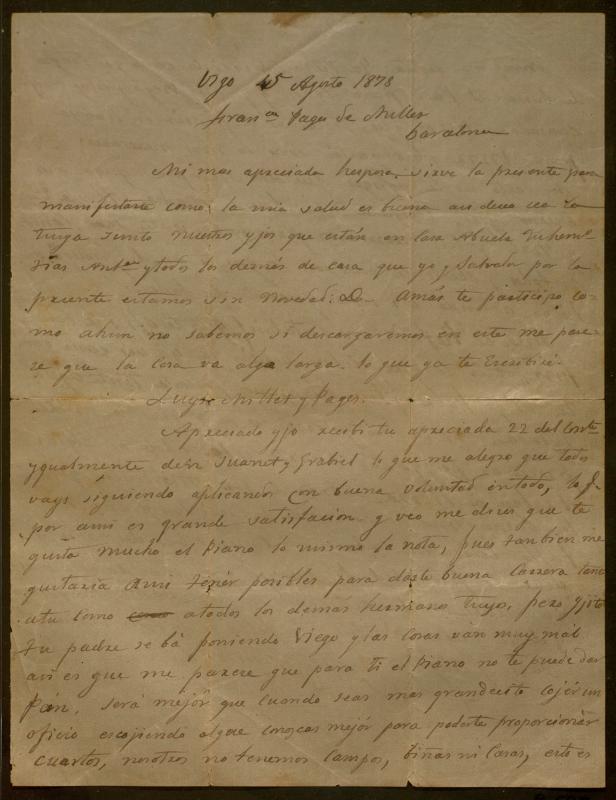 Vigo 15 Agosto 1878
Fran.ca Pages de Millet
Barcelona
Mi mas apreciada hesposa. sirve la presente para
manifestarte como la mia salud es buena asi deceo cea la
tuya junto nuestros yjos que están en casa Abuela
tias Ant.a ytodos los demás de casa que yo y Salvador por la
precente estamos sin novedad: Amás te participo co-
mo ahun no sabemos si descargaremos en este me pare-
ze que la cosa va algo larga. lo que ya te Escribiré.
Luys Millet y Pages.
Apreciado yjo recibi tu apreciada 22 del Corrte
ygualmente de Juanet y Grabiel lo que me alegro que todos
vays siguiendo aplicandos con buena voluntad entodo, lo q.
por ami es grande satisfacion y veo me dices que te
gusta mucho el Piano lo mismo la nota, pues tanbien me
gustaria ami tenér posibles para darte buena Carrera tanto
atu como atodos los demas hermanos tuyos, pero yjito
tu padre se bá poniendo Viego y las Cosas ván muy mál
asi es que me parere que para ti el Piano no te puede dar
Pán. será mejór que cuando seas mas grandecito cojér un
oficio escojiendo alque conoscas mejór para poderte proporcionár
cuartos, nosotros no tenemos Campos, biñas ni Casas, esto es